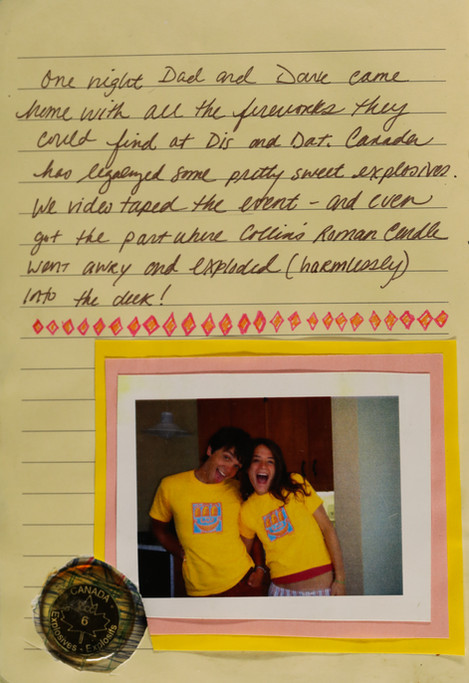 One night Dad and Dave came
home with all the fireworks they
could find at Dis and Dat. Canader
has legalized some pretty sweet explosives.
We video taped the event - and even
got the part where Collin's Roman Candle
went awry and exploded (harmlessly)
into the deck!
CANADA
6
Explosives - Explosifs